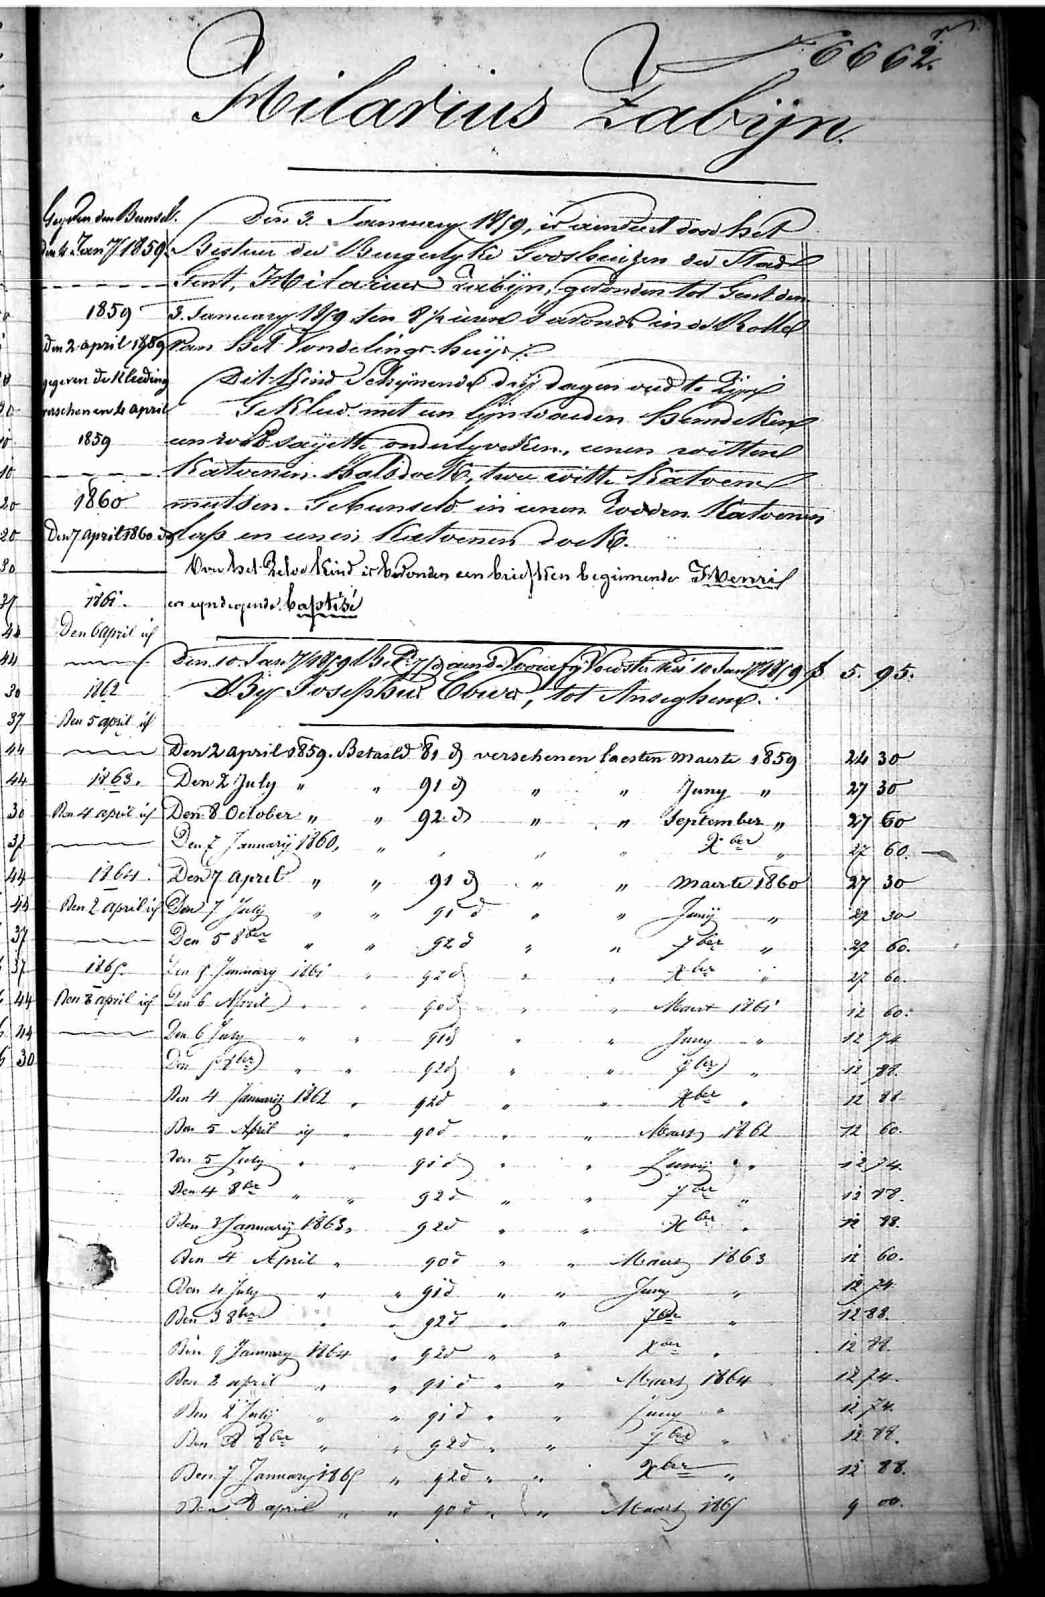 N° 6662.
Hilarius Zabijn.
Gegeven den Bunsel.
den 4 Jan 7/1859.
1859
Den 2 april 1859
gegeven de Kleeding
1859
1860
Den 7 april 1860
1861.
Den 6 april id
1862
Den 5 april id
1863.
Den 4 april id
1864.
Den 2 april id
1865.
Den 8 april id
Den 3. January 1859, is aenveert door het
Bestuer der Burgerlyke Godshuizen der Stad
Gent, Hilarius Zabijn, gevonden tot Gent den
3. January 1859. ten 8 1/2 uren s'avonds in de Rolle
van Het Vondelings-huys.
Dit Kind Schynende dry dagen oud te zyn
Gekleed met een lynwaeden Hemdeken
een rood sayette onderlyveken, eenen witten
Katoenen Halsdoek, twee witte Katoene
mutsen. Gebunseld in eenen Rooden Katoenen
en eenen Katoenen doek.
Over het Zelve Kind is bevonden een briefken beginnende Henri
en eyndigende baptise
Den 10. Jan 7/1859 5. 95.
Bij Josephus, tot Anseghem.
Den 2 april 1859. Betaald 81 d verschenen laesten Maerte 1859 24 30
Den 2 July " " 91 d " " Juny " 27 30
Den 8 October " " 92 d " " September " 27 60
Den 7 January 1860, " " " " Xber " 27 60.
Den 7 April " " 91 d " " Maerte 1860 27 30
Den 7 July " " 91 d " " Junij " 27 30
Den 5 8ber " " 92 d " " 7ber " 27 60.
Den 5 January 1861 " 92 d " " Xber " 27 60.
Den 6 April " " 90 d " " Maert 1861 12 60.
Den 6 July " " 91 d " " Juny " 12 74
Den 5 8ber " " 92 d " " 7ber " 12 88.
Den 4 January 1862 " 92 d " " Xber " 12 88
Den 5 April id " 90 d " " Maert 1862 12 60.
Den 5 July " " 91 d " " Junij " 12 74.
Den 4 8ber " " 92 d " " 7ber " 12 88.
Den 3 January 1863, " 92 d " " Xber " 12 88.
Den 4 April " 90 d " " Maert 1863 12 60.
Den 4 July " " 91 d " " Juny " 12 74
Den 3 8ber " " 92 d " " 7ber " 12 88.
Den 9 January 1864 " 92 d " " Xber " 12 88
Den 2 april " " 91 d " " Maert 1864 12 74.
Den 2 July " " 91 d " " Juny " 12 74.
Den 8 8ber " " 92 d " " 7ber " 12 88.
Den 7 January 1865 " 92 d " " Xber " 12 88.
Den 8 april " " 90 d " " Maert 1865 9 00.